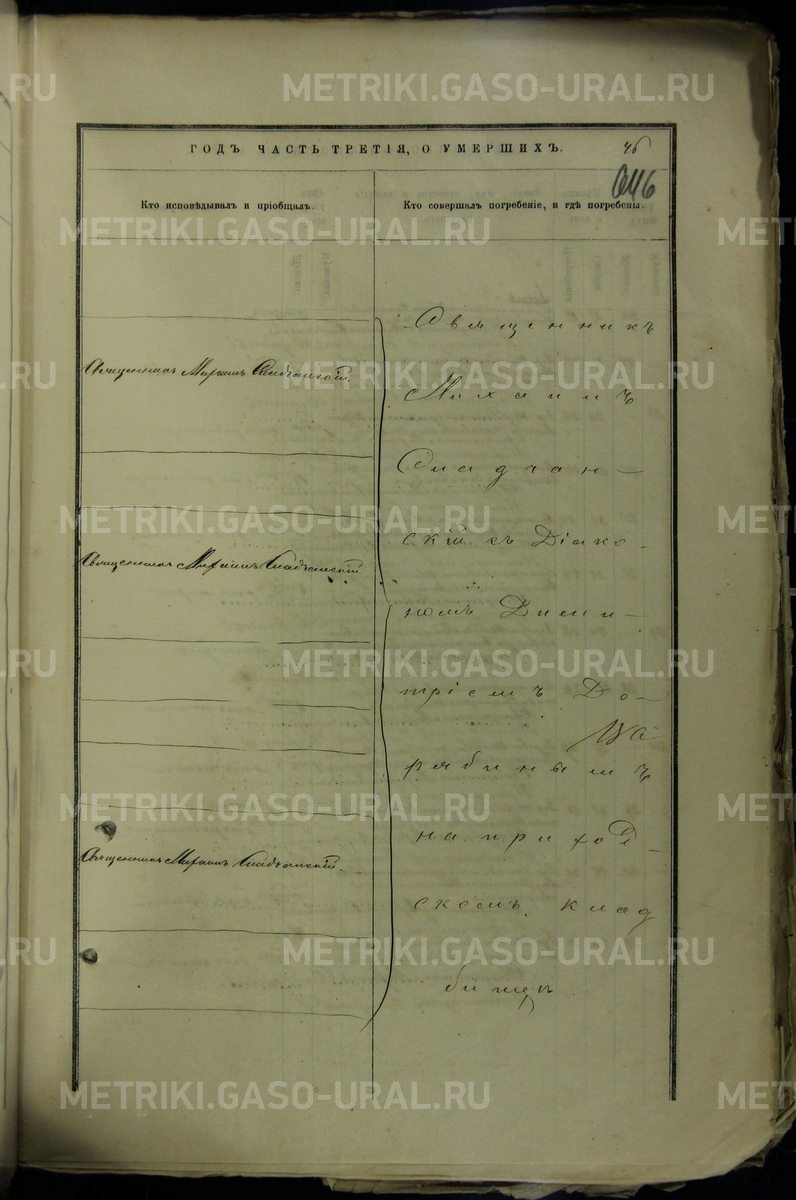 ГОДЪ ЧАСТЬ ТРЕТІЯ, О УМЕРШИХЪ.
46
Кто исповѣдывалъ и пріобщалъ.
Кто совершалъ погребеніе, и гдѣ погребены.
Священникъ Михаилъ Сладчанскій.
Священникъ Михаилъ Сладчанскій
Священникъ Михаилъ Сладчанскій.
Священникъ
Михаилъ
Сладчан-
скій съ Діако-
номъ Дими-
тріемъ
на приход-
скомъ клад
бищѣ
METRIKI.GASO-URAL.RU